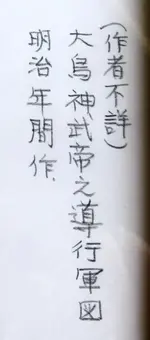 （作者不詳）
大鳥神武帝之導行軍図
明治年間作.